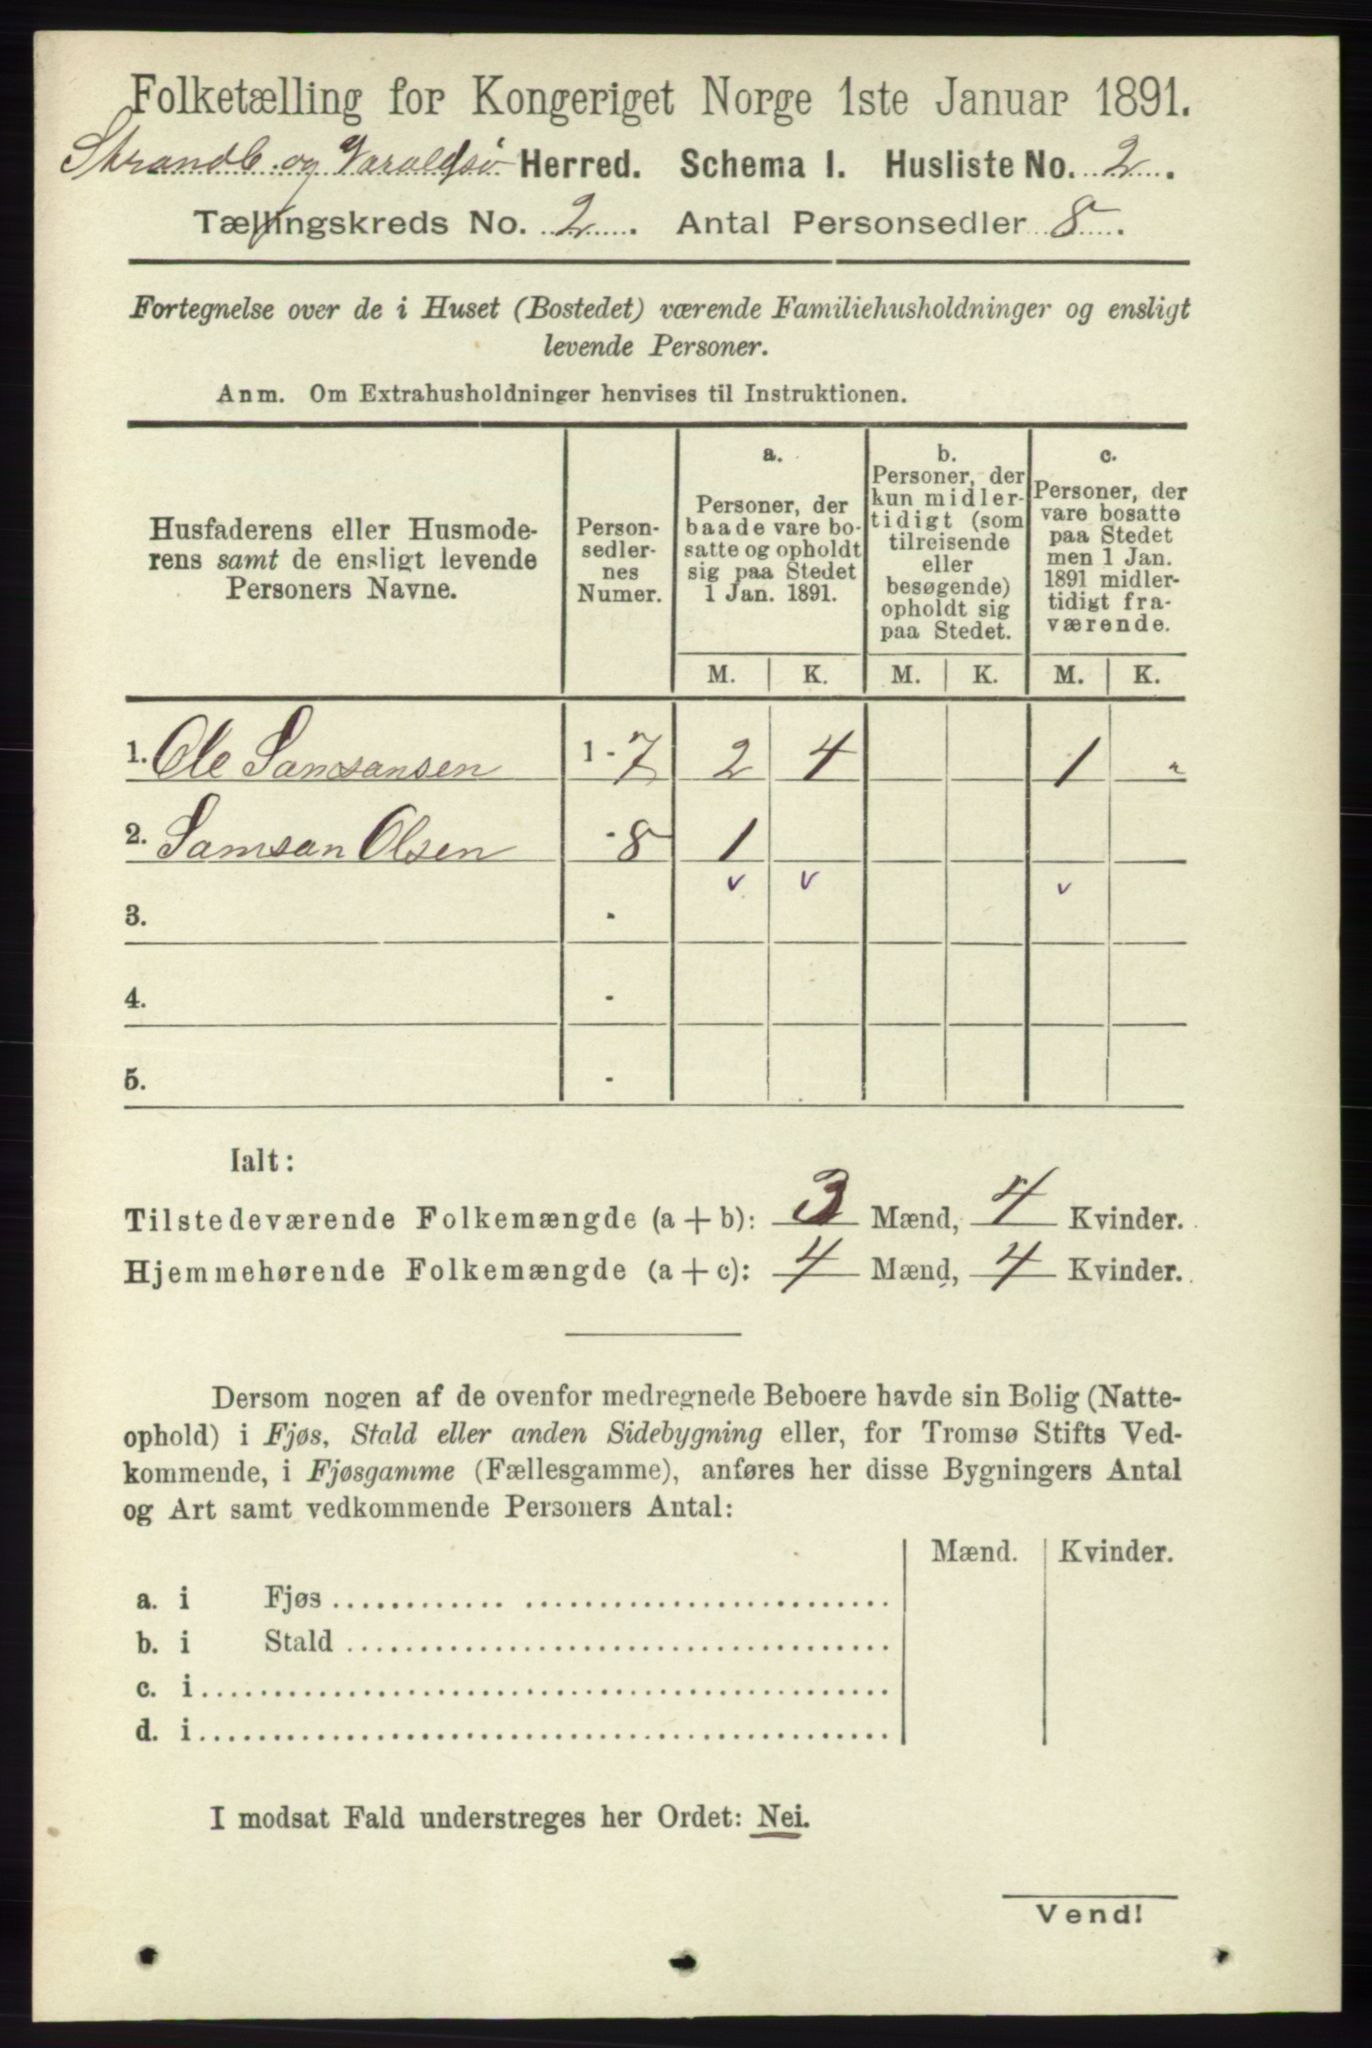 Folketælling for Kongeriget Norge 1ste Januar 1891.
Strandb. og Varaldsø Herred. Schema I. Husliste No. 2.
Tællingskreds No. 2. Antal Personsedler 8.
Fortegnelse over de i Huset (Bostedet) værende Familiehusholdninger og ensligt
levende Personer.
Anm. Om Extrahusholdninger henvises til Instruktionen.
Husfaderens eller Husmode-
rens samt de ensligt levende
Personers Navne.
Person-
sedler-
nes
Numer.
a.
Personer, der
baade vare bo-
satte og opholdt
sig paa Stedet
1 Jan. 1891.
b.
Personer, der
kun midler-
tidigt (som
tilreisende
eller
besøgende)
opholdt sig
paa Stedet.
c.
Personer, der
vare bosatte
paa Stedet
men 1 Jan.
1891 midler-
tidigt fra-
værende.
M. K. M. K. M. K.
1. Ole Samsansen 1 - 7 2 4 1
2. Samsan Olsen - 8 1
v v v
3. -
4. -
5. -
Ialt:
Tilstedeværende Folkemængde (a + b): 3 Mænd, 4 Kvinder.
Hjemmehørende Folkemængde (a + c): 4 Mænd, 4 Kvinder.
Dersom nogen af de ovenfor medregnede Beboere havde sin Bolig (Natte-
ophold) i Fjøs, Stald eller anden Sidebygning eller, for Tromsø Stifts Ved-
kommende, i Fjøsgamme (Fællesgamme), anføres her disse Bygningers Antal
og Art samt vedkommende Personers Antal:
Mænd. Kvinder.
a. i Fjøs
b. i Stald
c. i
d. i
I modsat Fald understreges her Ordet: Nei.
Vend!